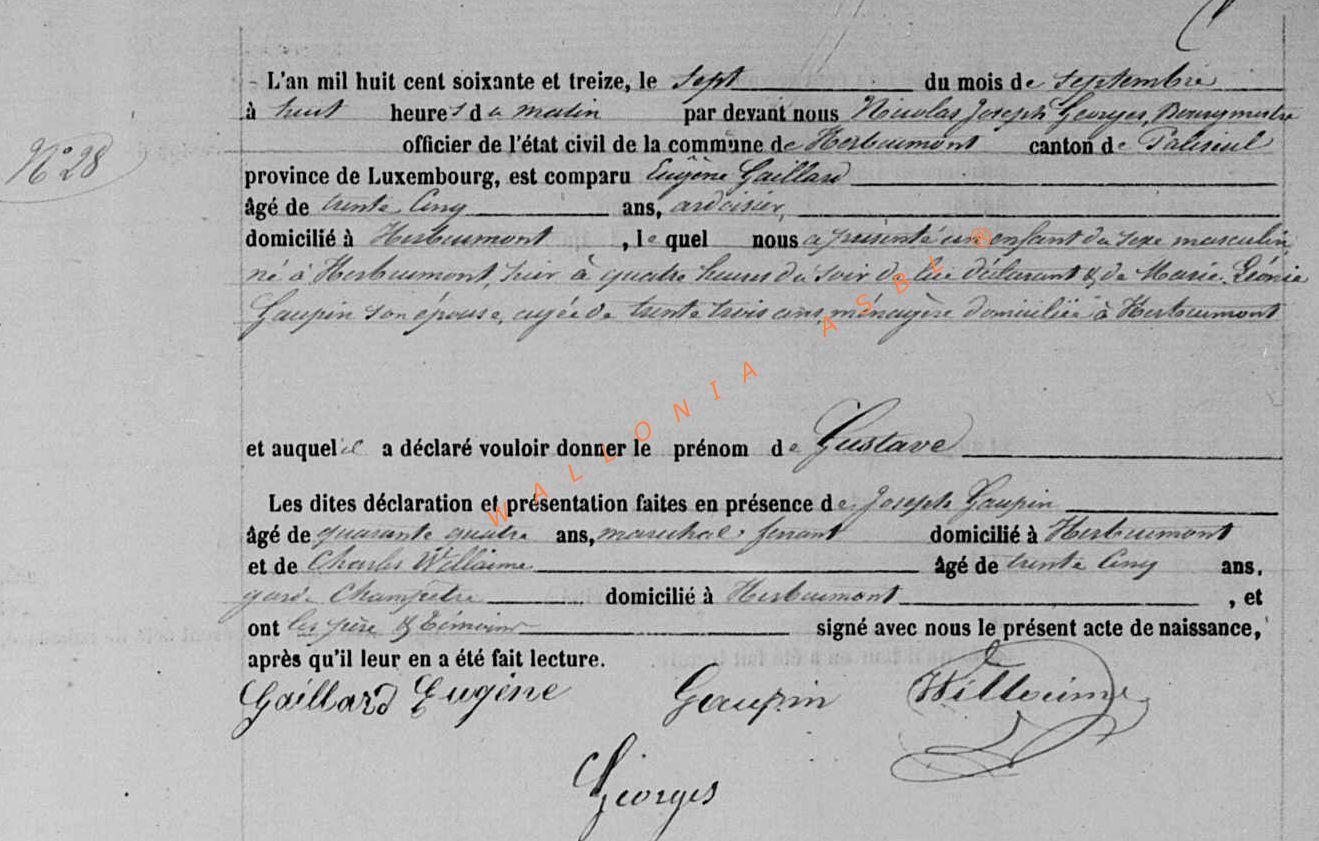 L'an mil huit cent soixante et treize, le sept du mois de septembre
à huit heures du matin par devant nous Nicolas Joseph Georges, Bourgmestre
officier de l'état civil de la commune de Herbeumont canton de Paliseul
N° 28
province de Luxembourg, est comparu Eugène Gaillard
âgé de trente cinq ans, ardoisier,
domicilié à Herbeumont, lequel nous a présenté un enfant du sexe masculin
né à Herbeumont, hier à quatre heures du soir de lui déclarant & de Marie Léonie
Gaupin son épouse, agée de trente trois ans, ménagère domiciliée à Herbeumont
WALLONIA ASBL ®
et auquel il a déclaré vouloir donner le prénom de Gustave
Les dites déclaration et présentation faites en présence de Joseph Gaupin
âgé de quarante quatre ans, marechal ferrant domicilié à Herbeumont
et de Charles Willaime âgé de trente cinq ans,
garde Champêtre domicilié à Herbeumont, et
ont les père & témoins signé avec nous le présent acte de naissance,
après qu'il leur en a été fait lecture.
Gaillard Eugène Gaupin Willaime
Georges